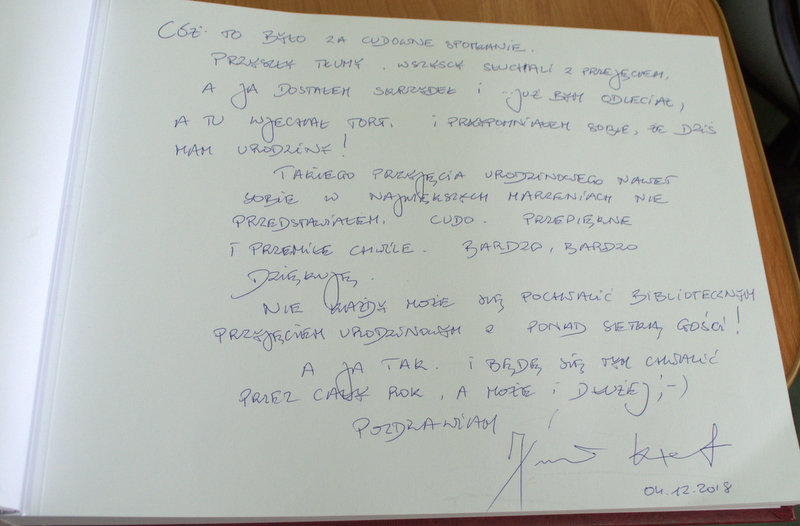 CÓŻ. TO BYŁO ZA CUDOWNE SPOTKANIE.
PRZYSZŁY TŁUMY. WSZYSCY SŁUCHALI Z PRZEJĘCIEM,
A JA DOSTAŁEM SKRZYDEŁ I ...JUŻ BYM ODLECIAŁ,
A TU WJECHAŁ TORT. I PRZYPOMNIAŁEM SOBIE, ŻE DZIŚ
MAM URODZINY!
TAKIEGO PRZYJĘCIA URODZINOWEGO NAWET
SOBIE W NAJWIĘKSZYCH MARZENIACH NIE
PRZEDSTAWIAŁEM. CUDO. PRZEPIĘKNE
I PRZEMIŁE CHWILE. BARDZO, BARDZO
DZIĘKUJĘ.
NIE KAŻDY MOŻE SIĘ POCHWALIĆ BIBLIOTECZNYM
PRZYJĘCIEM URODZINOWYM Z PONAD SETKĄ GOŚCI!
A JA TAK. I BĘDĘ SIĘ TYM CHWALIĆ
PRZEZ CAŁY ROK, A MOŻE I DŁUŻEJ ;-)
POZDRAWIAM
04.12.2018